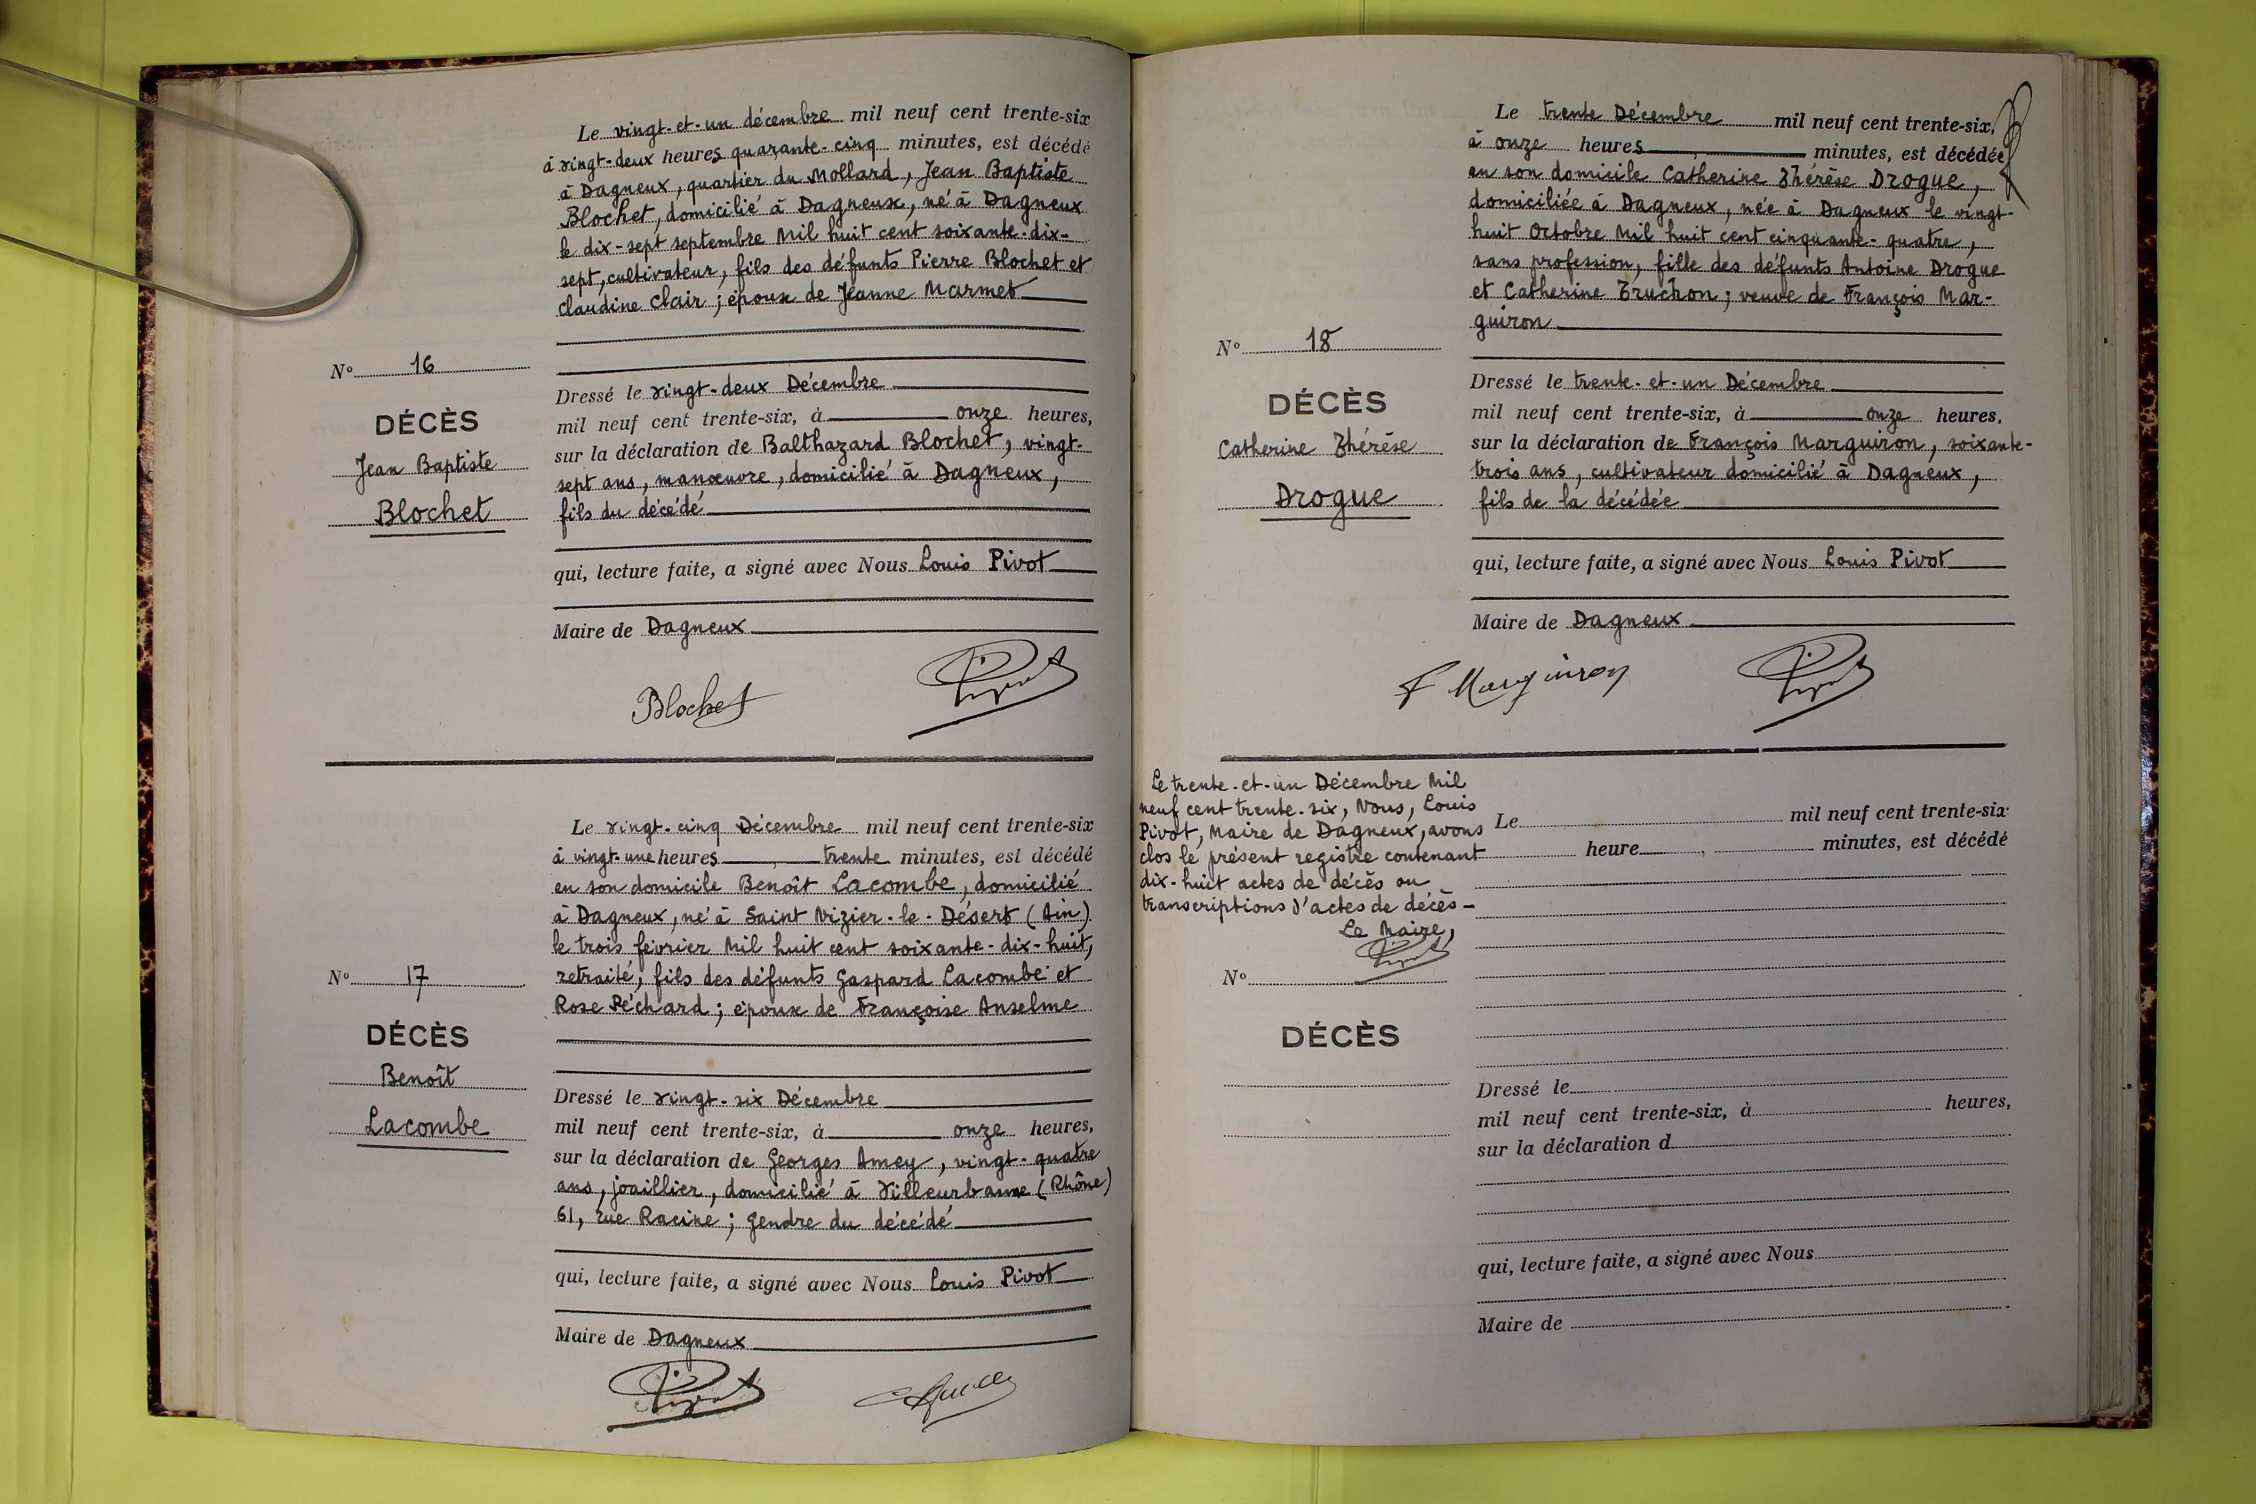 Le vingt-et-un décembre mil neuf cent trente-six
à vingt-deux heures quarante-cinq minutes, est décédé
à Dagneux, quartier du Mollard, Jean Baptiste
Blochet, domicilié à Dagneux, né à Dagneux
le dix-sept septembre Mil huit cent soixante-dix-
sept, cultivateur, fils des défunts Pierre Blochet et
Claudine Clair ; époux de Jeanne Marmet
N° 16
DÉCÈS
Jean Baptiste
Blochet
Dressé le vingt-deux Décembre
mil neuf cent trente-six, à onze heures,
sur la déclaration de Balthazard Blochet, vingt-
sept ans, manœuvre, domicilié à Dagneux,
fils du décédé
qui, lecture faite, a signé avec Nous Louis Pivot
Maire de Dagneux
Blochet Pivot
Le vingt-cinq Décembre mil neuf cent trente-six
à vingt-une heures trente minutes, est décédé
en son domicile Benoît Lacombe, domicilié
à Dagneux, né à Saint Nizier-le-Désert (Ain)
le trois février Mil huit cent soixante-dix-huit,
retraité, fils des défunts Gaspard Lacombe et
Rose Péchard ; époux de Françoise Anselme
N° 17
DÉCÈS
Benoît
Lacombe
Dressé le vingt-six Décembre
mil neuf cent trente-six, à onze heures,
sur la déclaration de Georges Amey, vingt-quatre
ans, joaillier, domicilié à Villeurbanne (Rhône)
61, rue Racine ; gendre du décédé
qui, lecture faite, a signé avec Nous Louis Pivot
Maire de Dagneux
Pivot
Le trente Décembre mil neuf cent trente-six,
à onze heures minutes, est décédée
en son domicile Catherine Thérèse Drogue,
domiciliée à Dagneux, née à Dagneux le vingt-
huit Octobre Mil huit cent cinquante-quatre,
sans profession, fille des défunts Antoine Drogue
et Catherine Truchon ; veuve de François Mar-
guiron
N° 18
DÉCÈS
Catherine Thérèse
Drogue
Dressé le trente-et-un Décembre
mil neuf cent trente-six, à onze heures,
sur la déclaration de François Marguiron, soixante-
trois ans, cultivateur domicilié à Dagneux,
fils de la décédée
qui, lecture faite, a signé avec Nous Louis Pivot
Maire de Dagneux
F Marguiron Pivot
Le trente-et-un Décembre Mil
neuf cent trente-six, Nous, Louis
Pivot, Maire de Dagneux, avons
clos le présent registre contenant
dix-huit actes de décès ou
transcriptions d'actes de décès -
Le Maire,
Pivot
Le mil neuf cent trente-six
heure minutes, est décédé
N°
DÉCÈS
Dressé le
mil neuf cent trente-six, à heures,
sur la déclaration d
qui, lecture faite, a signé avec Nous
Maire de